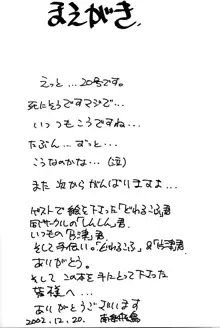 まえがき.
えっと…20号です。
死にそうですマジで…
いっつもこうですね…
たぶん…ずっと…
こうなのかな…(泣)
また次からがんばりますよ…
ゲストで絵を下さった「どれみこふ」君
同サークルの「しんしん」君
いつもの「津」君
そして手伝い。「どれみこふ」&「津」君
ありがとう。
そしてこの本を手にとって下さった
皆様へ…
ありがとうございます
2002.12.20.